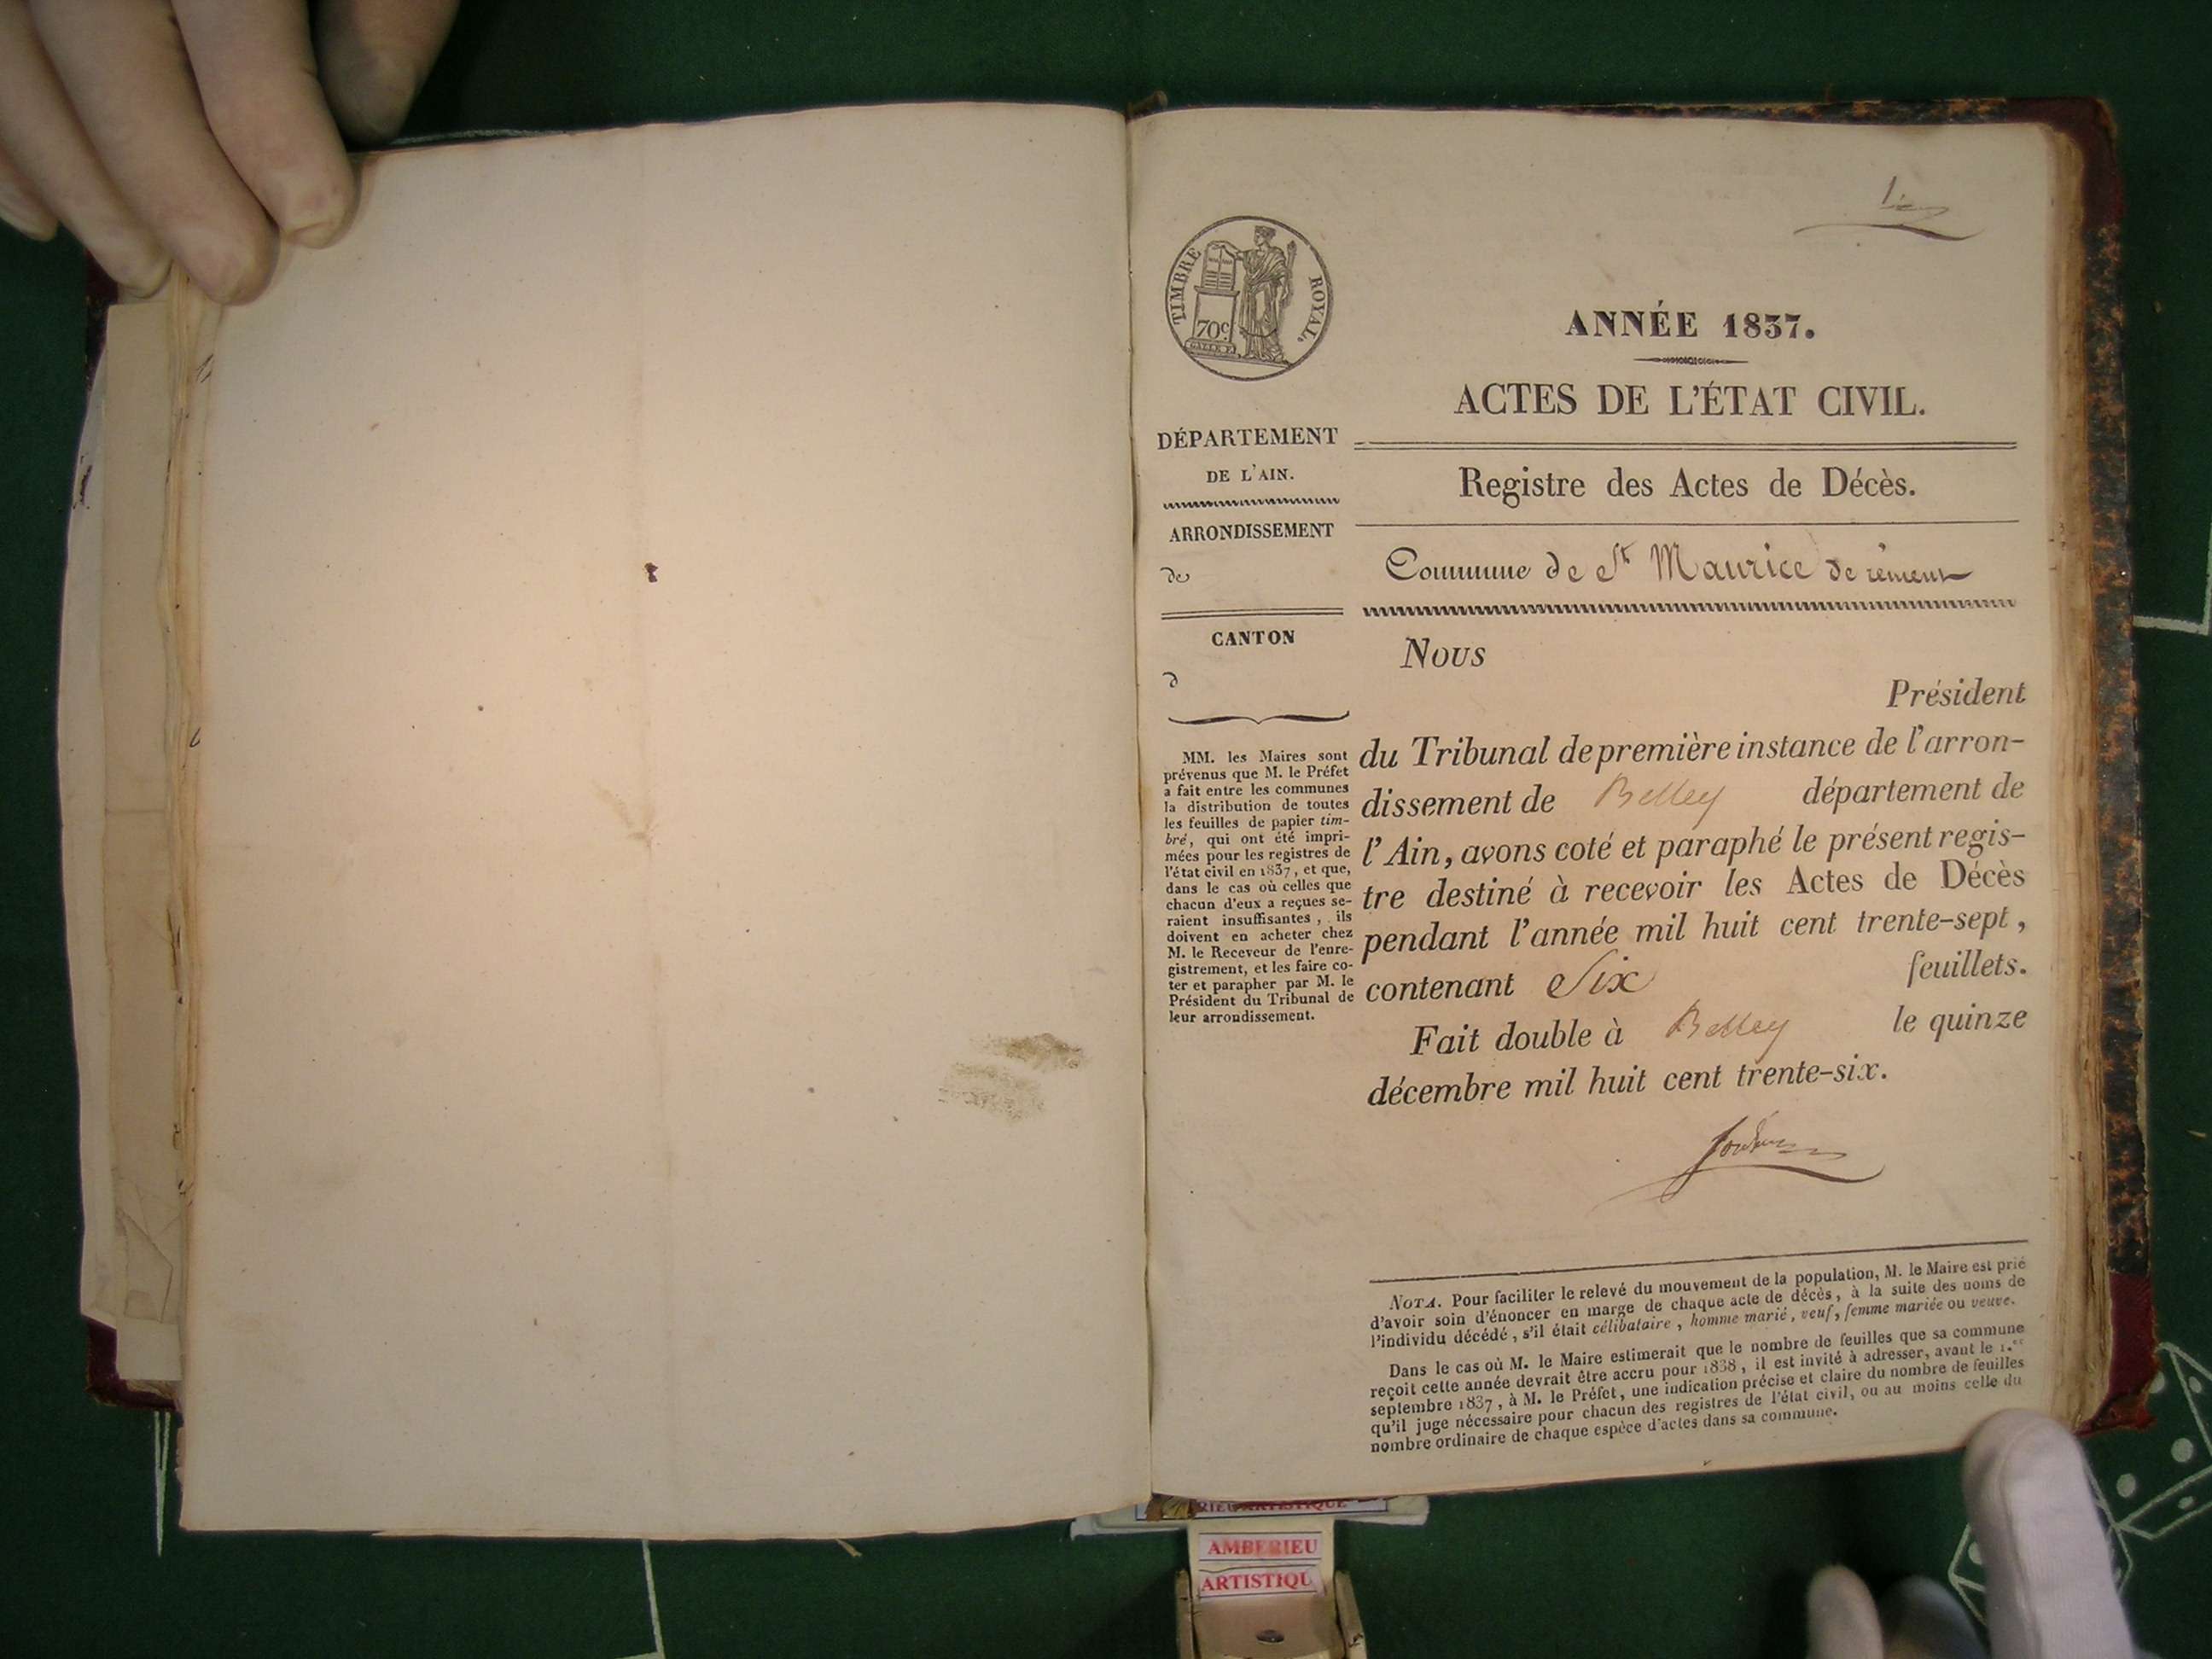 1er
TIMBRE ROYAL.
70c
ANNÉE 1837.
ACTES DE L'ÉTAT CIVIL.
Registre des Actes de Décès.
Commune de St Maurice de rémens
DÉPARTEMENT
DE L'AIN.
ARRONDISSEMENT
de
CANTON
d
MM. les Maires sont
prévenus que M. le Préfet
a fait entre les communes
la distribution de toutes
les feuilles de papier tim-
bré, qui ont été impri-
mées pour les registres de
l'état civil en 1837, et que,
dans le cas où celles que
chacun d'eux a reçues se-
raient insuffisantes, ils
doivent en acheter chez
M. le Receveur de l'enre-
gistrement, et les faire co-
ter et parapher par M. le
Président du Tribunal de
leur arrondissement.
Nous
Président
du Tribunal de première instance de l'arron-
dissement de Belley département de
l'Ain, avons coté et paraphé le présent regis-
tre destiné à recevoir les Actes de Décès
pendant l'année mil huit cent trente-sept,
contenant Six feuillets.
Fait double à Belley le quinze
décembre mil huit cent trente-six.
NOTA. Pour faciliter le relevé du mouvement de la population, M. le Maire est prié
d'avoir soin d'énoncer en marge de chaque acte de décès, à la suite des noms de
l'individu décédé, s'il était célibataire, homme marié, veuf, femme mariée ou veuve.
Dans le cas où M. le Maire estimerait que le nombre de feuilles que sa commune
reçoit cette année devrait être accru pour 1838, il est invité à adresser, avant le 1.er
septembre 1837, à M. le Préfet, une indication précise et claire du nombre de feuilles
qu'il juge nécessaire pour chacun des registres de l'état civil, ou au moins celle du
nombre ordinaire de chaque espèce d'actes dans sa commune.
ARTISTIQUE
AMBERIEU
ARTISTIQU